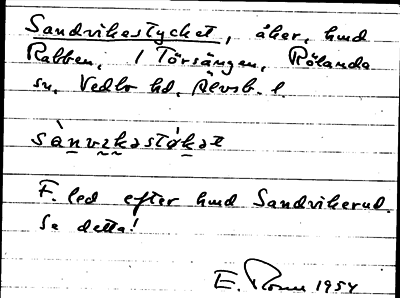 Sandvikestycket, åker, hmd
Rabben, 1 Törsängen, Rölanda
sn, Vedbo hd, Älvsb. l.
sànvikəstø̀kət
F. led efter hmd Sandvikerud.
Se detta!
E. 1954